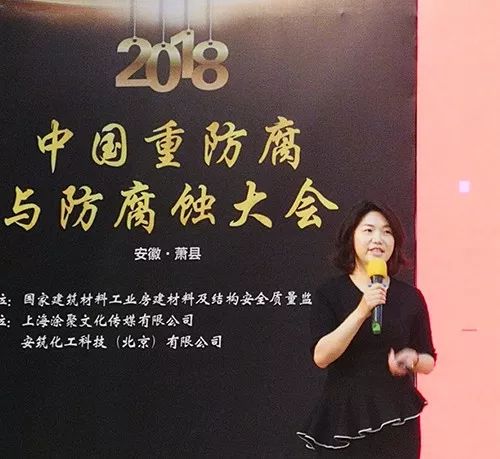 2018
中国重防腐
与防腐蚀大会
安徽·萧县
位：国家建筑材料工业房建材料及结构安全质量监
位：上海涂聚文化传媒有限公司
安筑化工科技（北京）有限公司